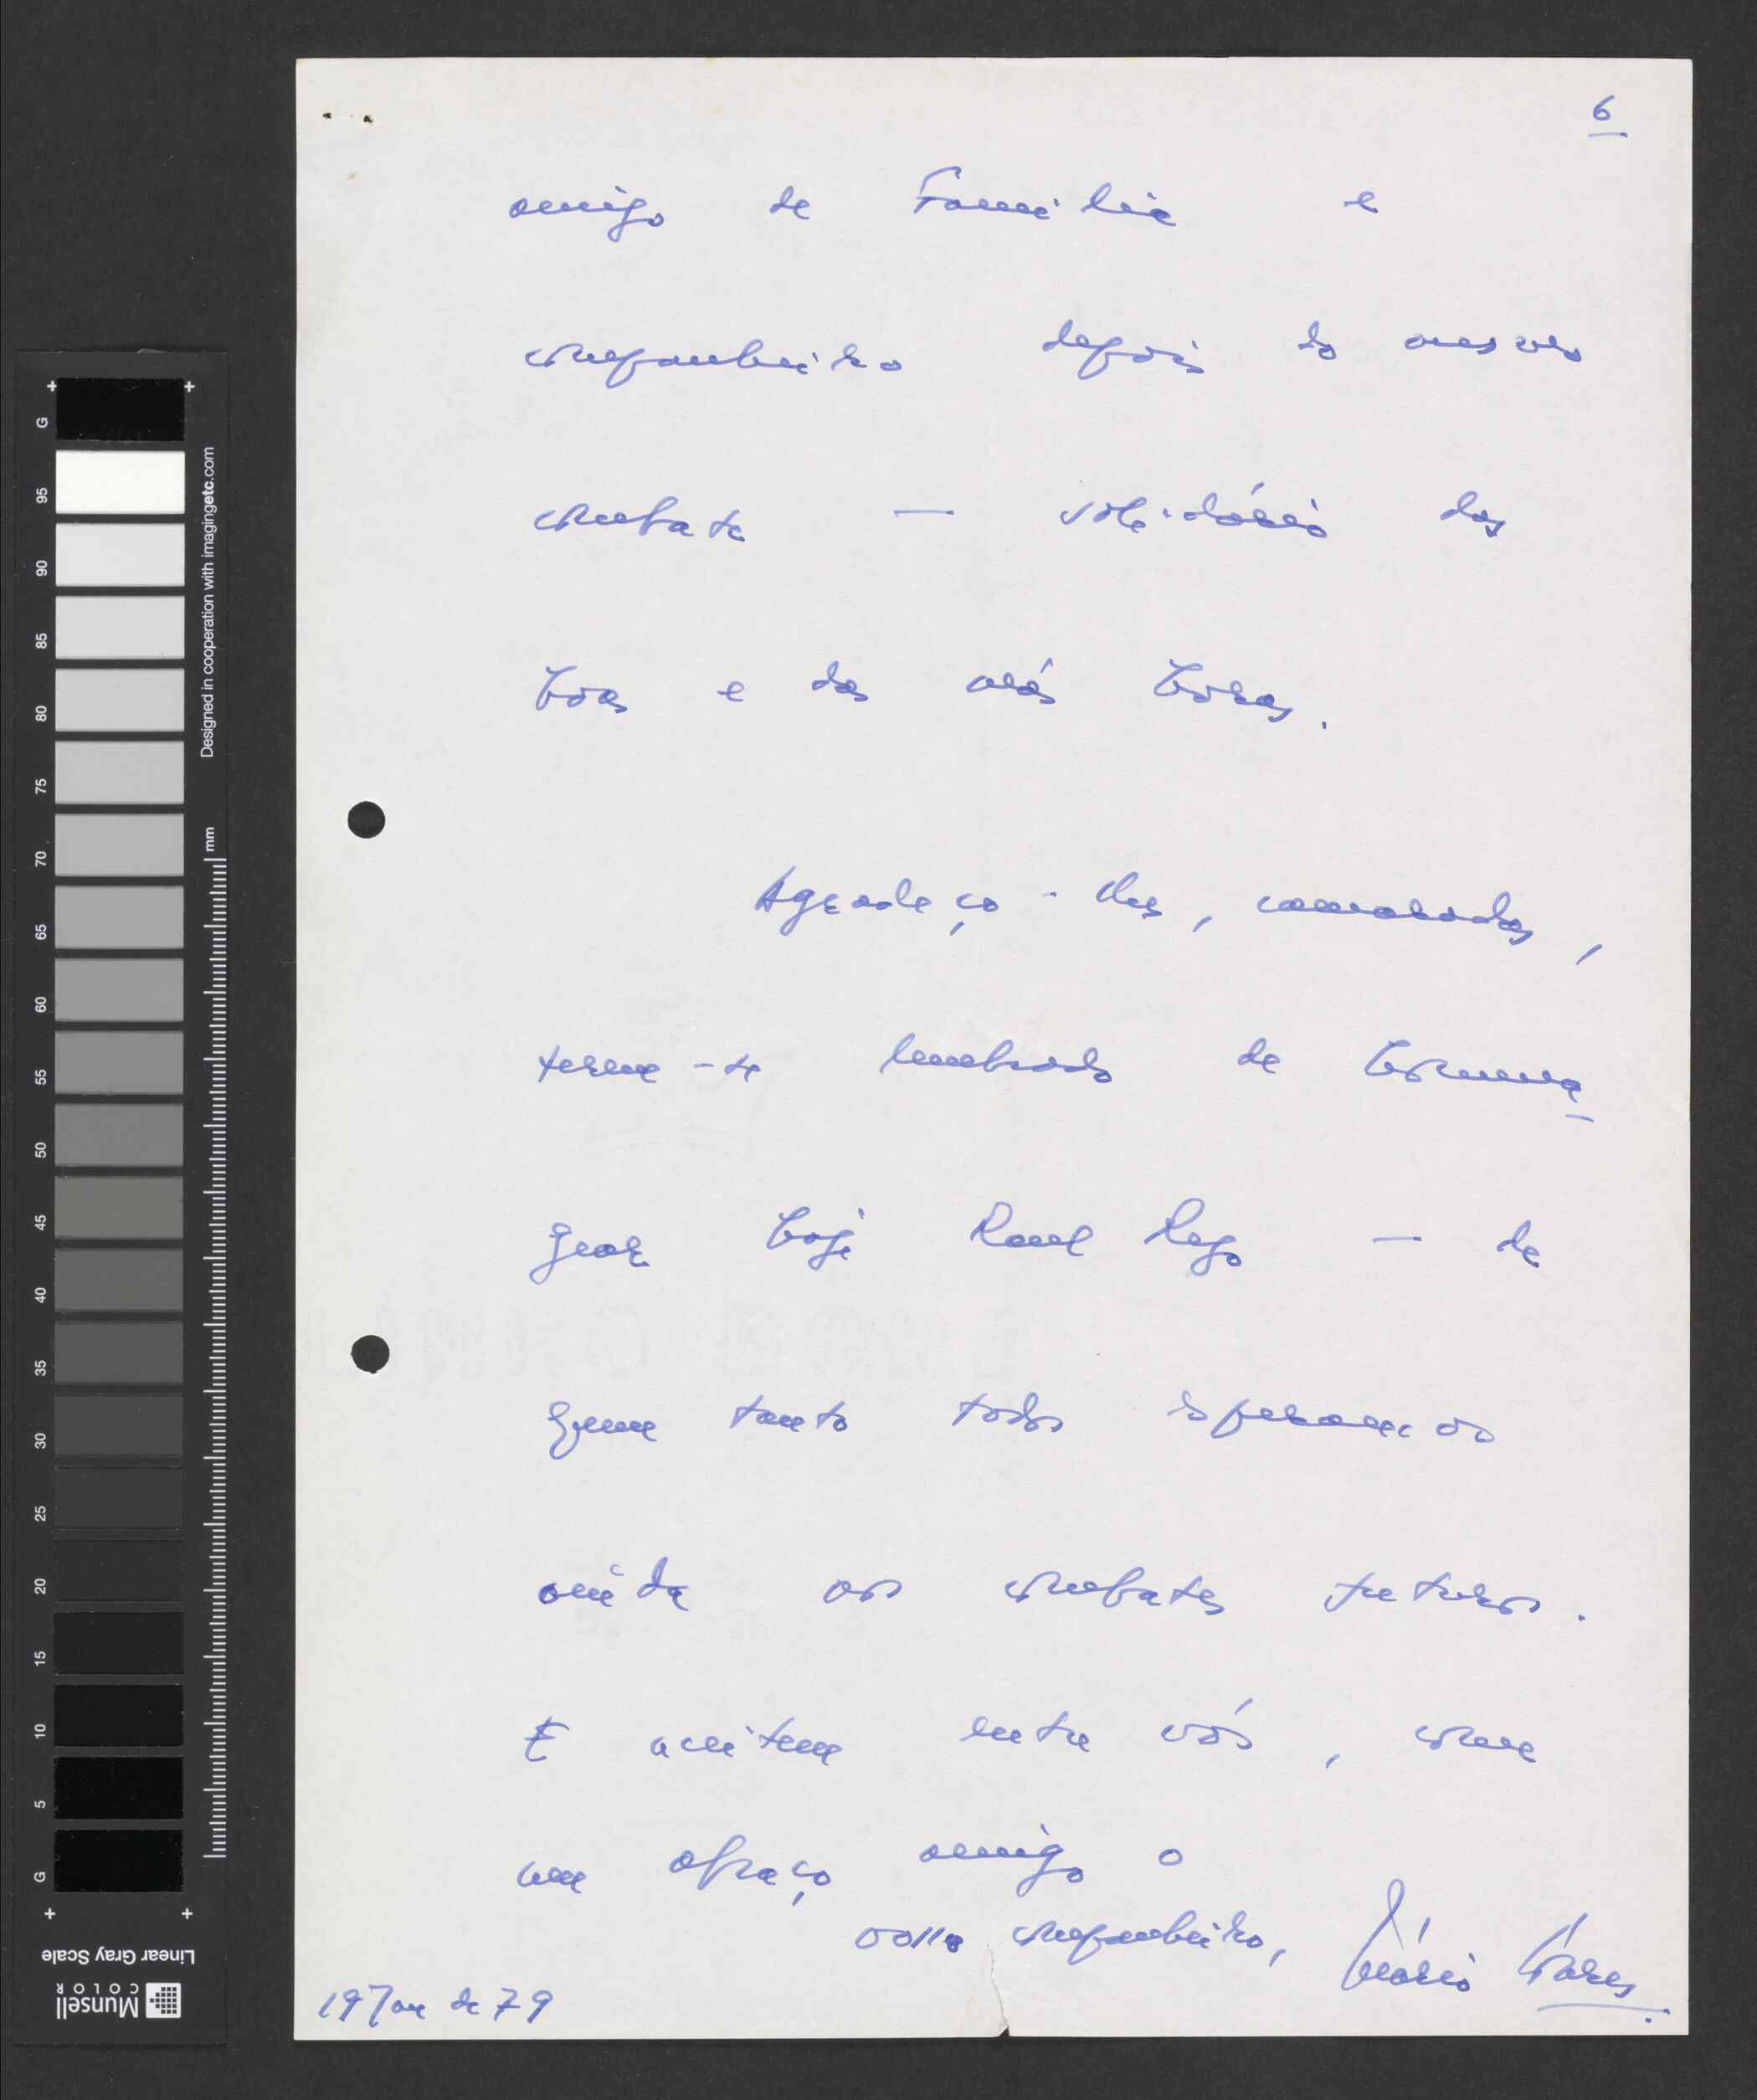 6
amigo de Família e
companheiro depois do mesmo
combate — solidário das
boas e das más horas.
Agradeço-lhes, camaradas,
terem-se lembrado de homena-
gear hoje Raul Rego — de
quem tanto todos esperamos
ainda nos combates futuros.
E aceitem entre vós, com
um abraço amigo o
vosso companheiro, Mário Soares.
19 Jan de 79
G
95
90
85
80
75
70
65
60
55
50
45
40
35
30
25
20
15
10
5
G
Designed in cooperation with imagingetc.com
mm
Linear Gray Scale
Munsell
COLOR